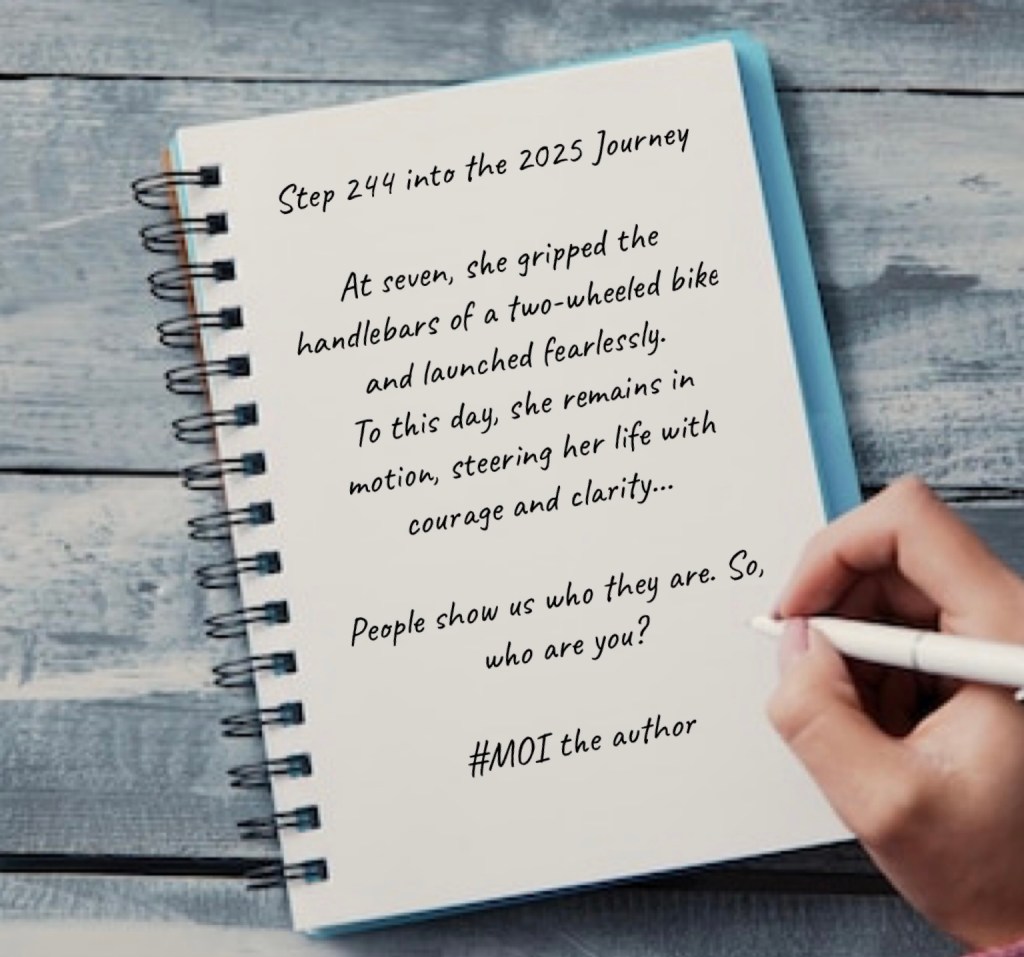 Step 244 into the 2025 Journey
At seven, she gripped the
handlebars of a two-wheeled bike
and launched fearlessly.
To this day, she remains in
motion, steering her life with
courage and clarity...
People show us who they are. So,
who are you?
#MOI the author